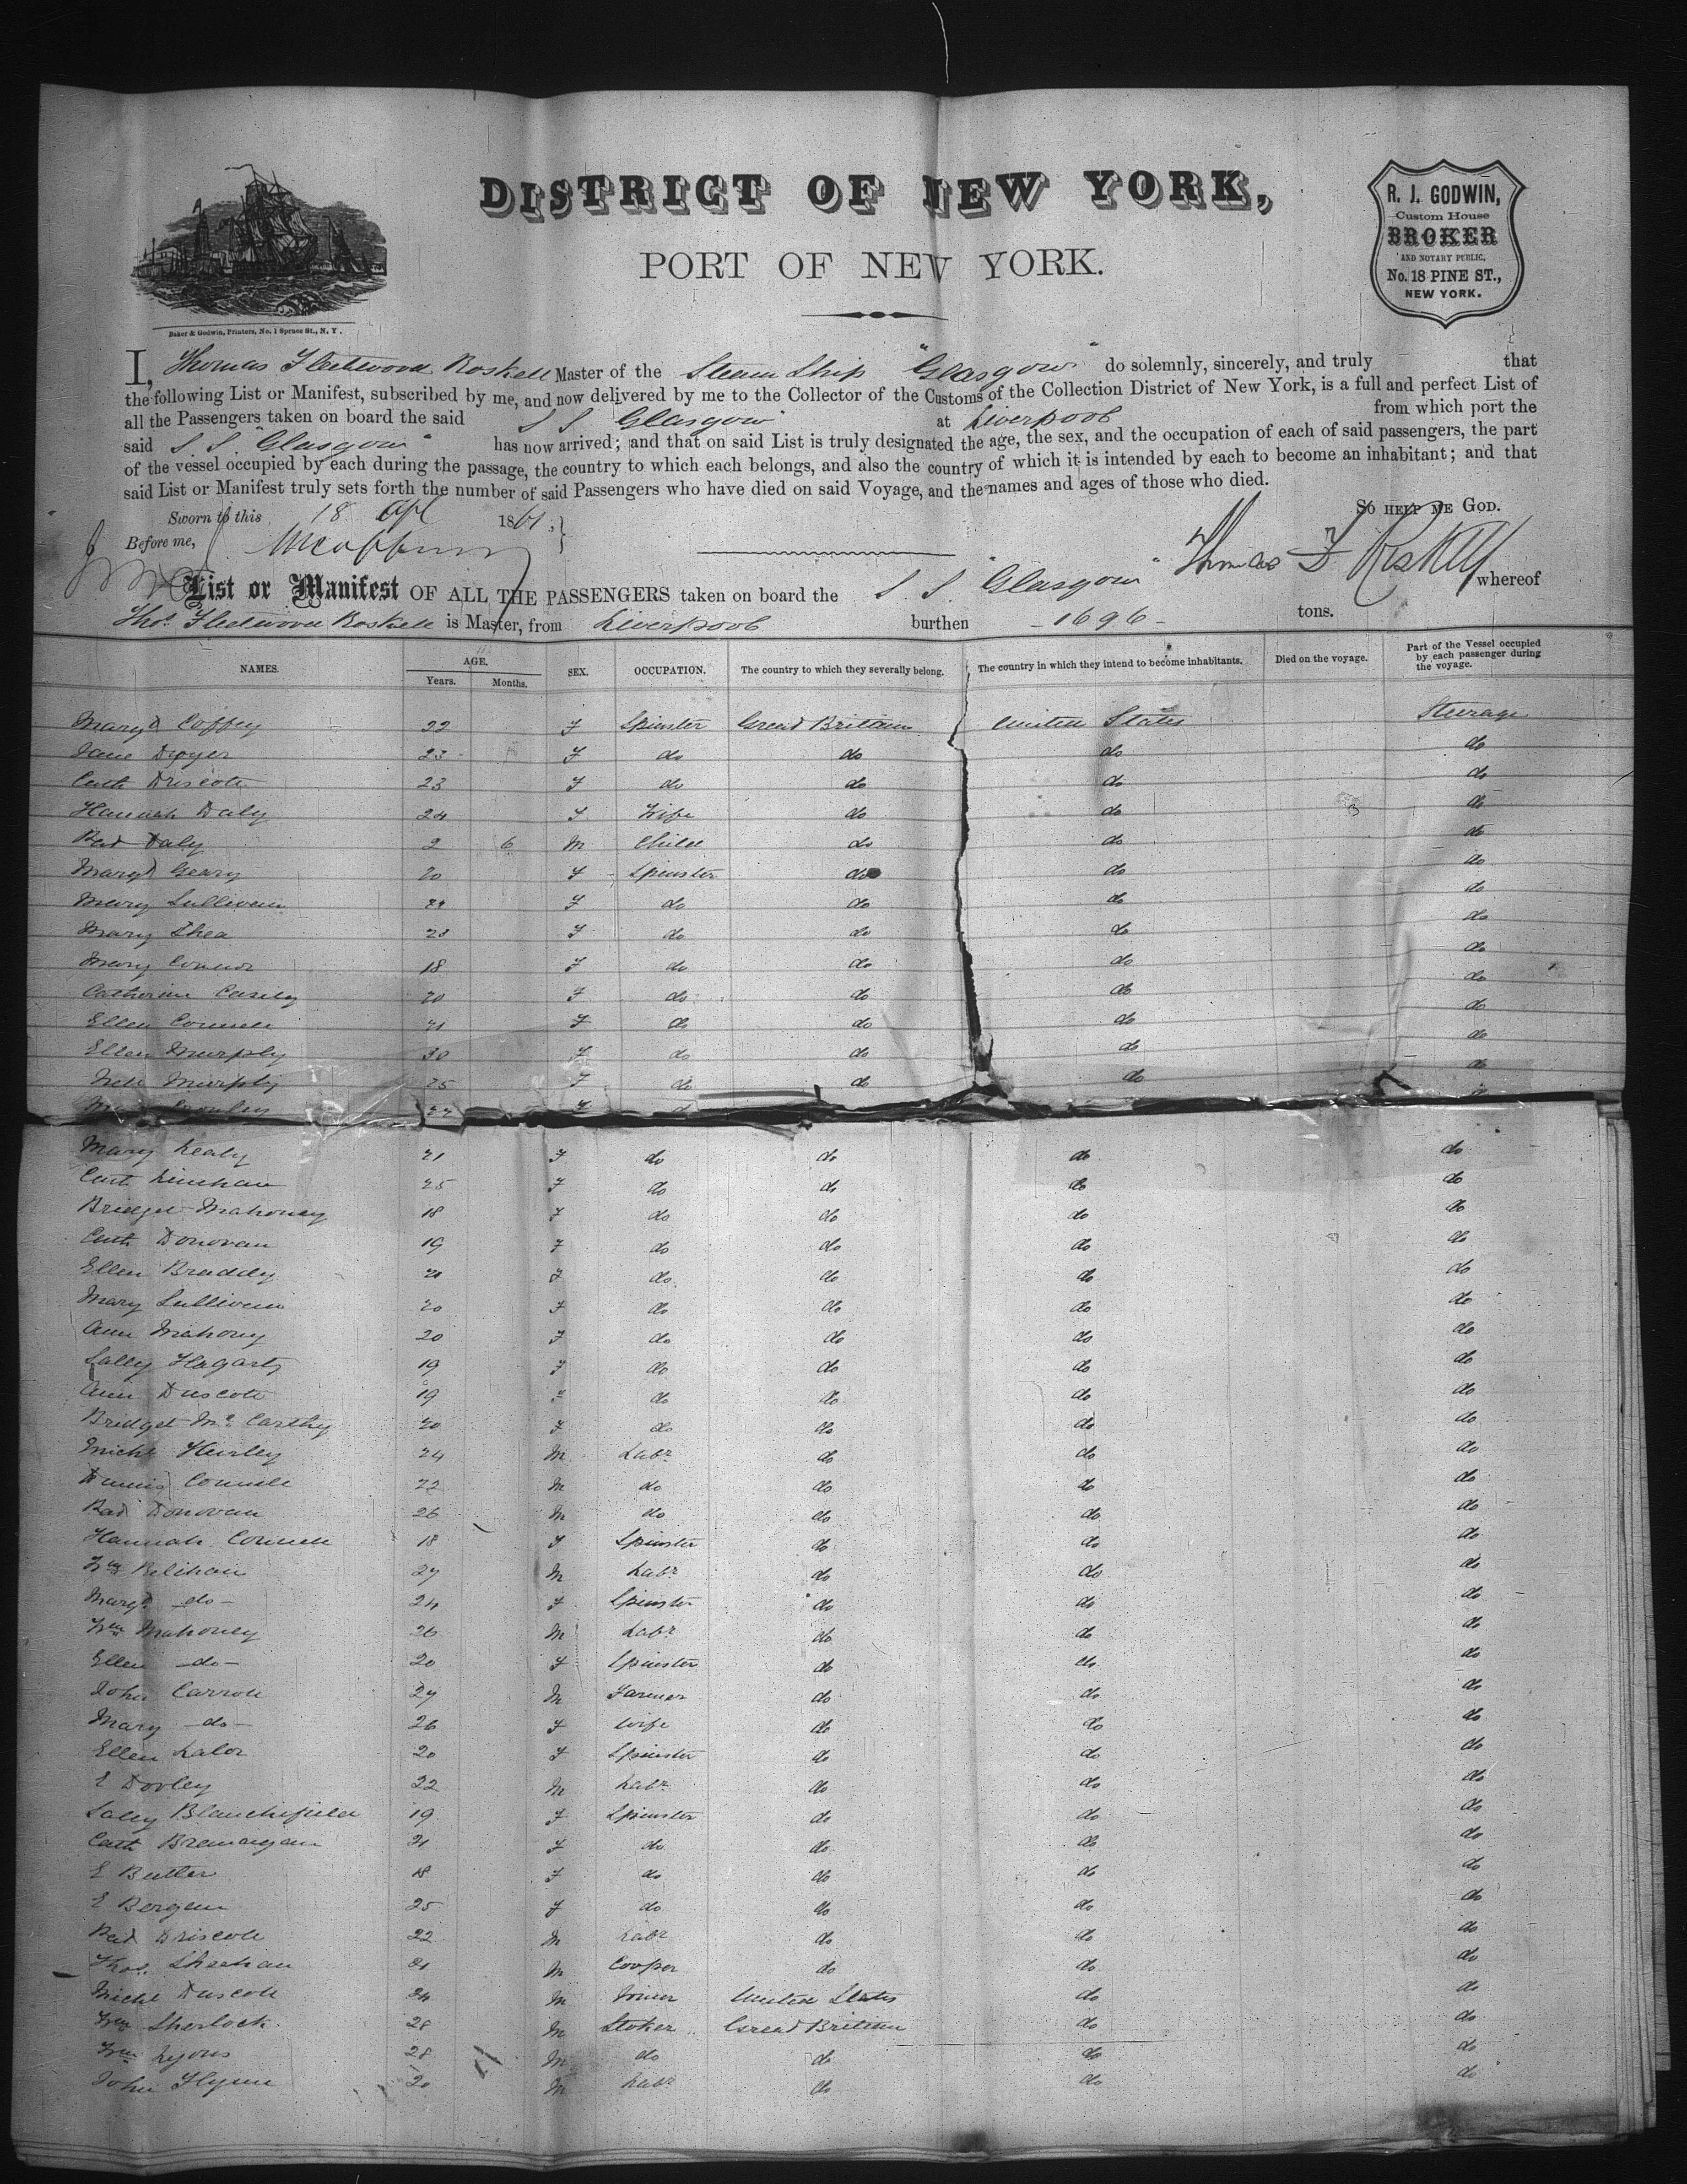 DISTRICT OF NEW YORK,
PORT OF NEW YORK.
R. J. GODWIN,
Custom House
BROKER
AND NOTARY PUBLIC,
No. 18 PINE ST.,
NEW YORK.
Baker & Godwin, Printers, No. 1 Spruce St., N. Y.
I, Thomas Fleetwood Roskell Master of the Steam Ship "Glasgow" do solemnly, sincerely, and truly that
the following List or Manifest, subscribed by me, and now delivered by me to the Collector of the Customs of the Collection District of New York, is a full and perfect List of
all the Passengers taken on board the said S S Glasgow at Liverpool from which port the
said S. S. "Glasgow" has now arrived; and that on said List is truly designated the age, the sex, and the occupation of each of said passengers, the part
of the vessel occupied by each during the passage, the country to which each belongs, and also the country of which it is intended by each to become an inhabitant; and that
said List or Manifest truly sets forth the number of said Passengers who have died on said Voyage, and the names and ages of those who died.
Sworn to this 18 Apl 1861, So HELP ME GOD.
Before me, Thomas F Roskell
List or Manifest OF ALL THE PASSENGERS taken on board the S. S. "Glasgow" whereof
Thos. Fleetwood Roskell is Master, from Liverpool burthen - 1696 - tons.
NAMES. AGE. Years. Months. SEX. OCCUPATION. The country to which they severally belong. The country in which they intend to become inhabitants. Died on the voyage. Part of the Vessel occupied by each passenger during the voyage.
Margt Coffey 22 F Spinster Great Britain United States Steerage
Jane Dwyer 23 F do do do do
Cath Driscoll 23 F do do do do
Hannah Daly 24 F Wife do do do
Pat Daly 2 6 M Child do do do
Margt Geary 20 F Spinster do do do
Mary Sullivan 21 F do do do do
Mary Shea 23 F do do do do
Mary Connor 18 F do do do do
Catherine Casily 20 F do do do do
Ellen Connell 21 F do do do do
Ellen Murphy 30 F do do do do
Murphy 25 F do do do do
Crowley 22 F
Mary Healy 21 F do do do do
Cath Linehan 25 F do do do do
Bridget Mahoney 18 F do do do do
Cath Donovan 19 F do do do do
Ellen Braddy 21 F do do do do
Mary Sullivan 20 F do do do do
Ann Mahony 20 F do do do do
Sally Hagarty 19 F do do do do
Ann Driscoll 19 " do do do do
Bridget Mc Carthy 20 F do do do do
Michl Hurley 24 M Labr do do do
Dennis Connell 22 M do do do do
Pat Donovan 26 M do do do do
Hannah Connell 18 F Spinster do do do
Wm Relihan 27 M Labr do do do
Margt -do- 24 F Spinster do do do
Wm Mahoney 26 M Labr do do do
Ellen -do- 20 F Spinster do do do
John Carroll 27 M Farmer do do do
Mary -do- 26 F Wife do do do
Ellen Lalor 20 F Spinster do do do
E Dooley 22 M Labr do do do
Sally Blanchfield 19 F Spinster do do do
Cath Brennan 21 F do do do do
E Butler 18 F do do do do
E Bergen 25 F do do do do
Pat Driscoll 22 M Labr do do do
Thos. Sheehan 21 M Cooper do do do
Michl Driscoll 24 M Joiner United States do do
Wm Sherlock 28 M Stoker Great Britain do do
Wm Lyons 28 M do do do do
John Flynn 20 M Labr do do do